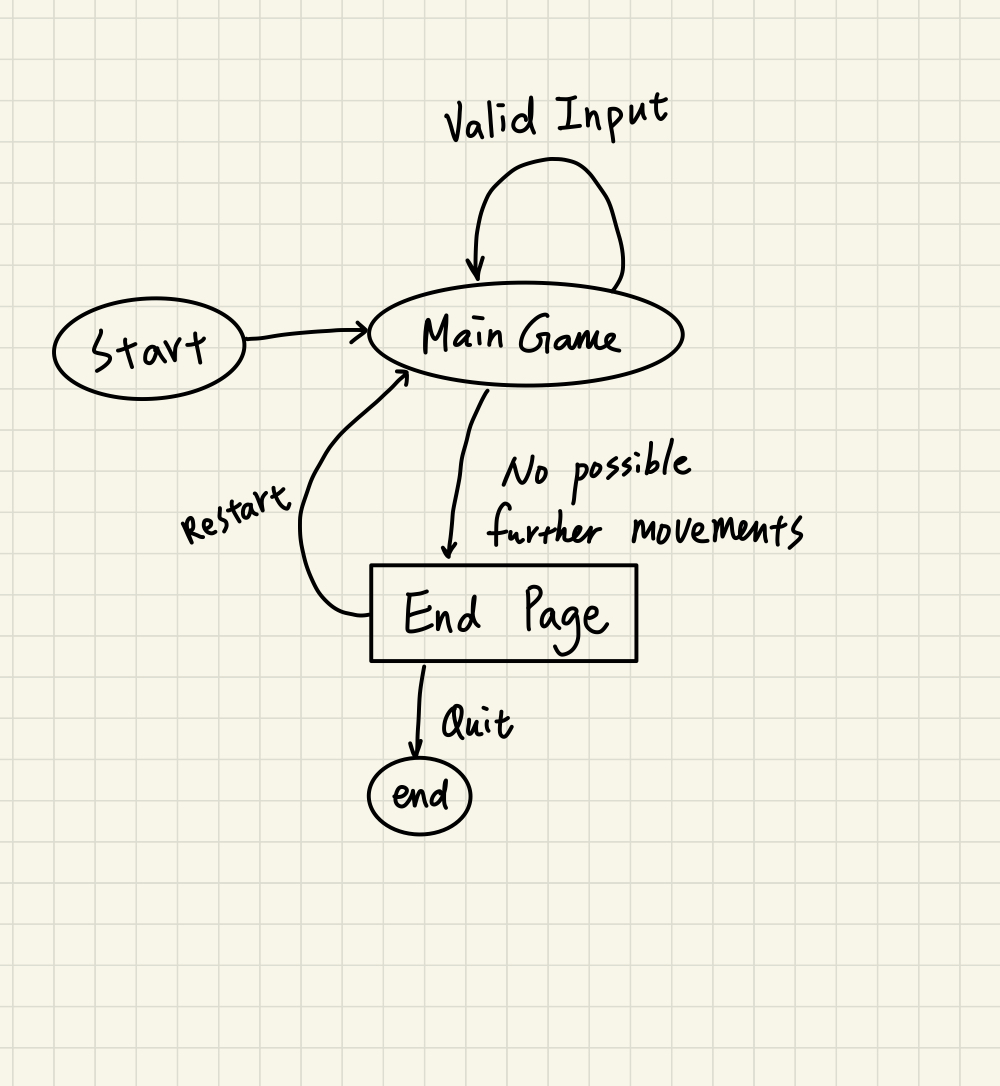 Valid Input
Start
Main Game
No possible
further movements
Restart
End Page
Quit
end